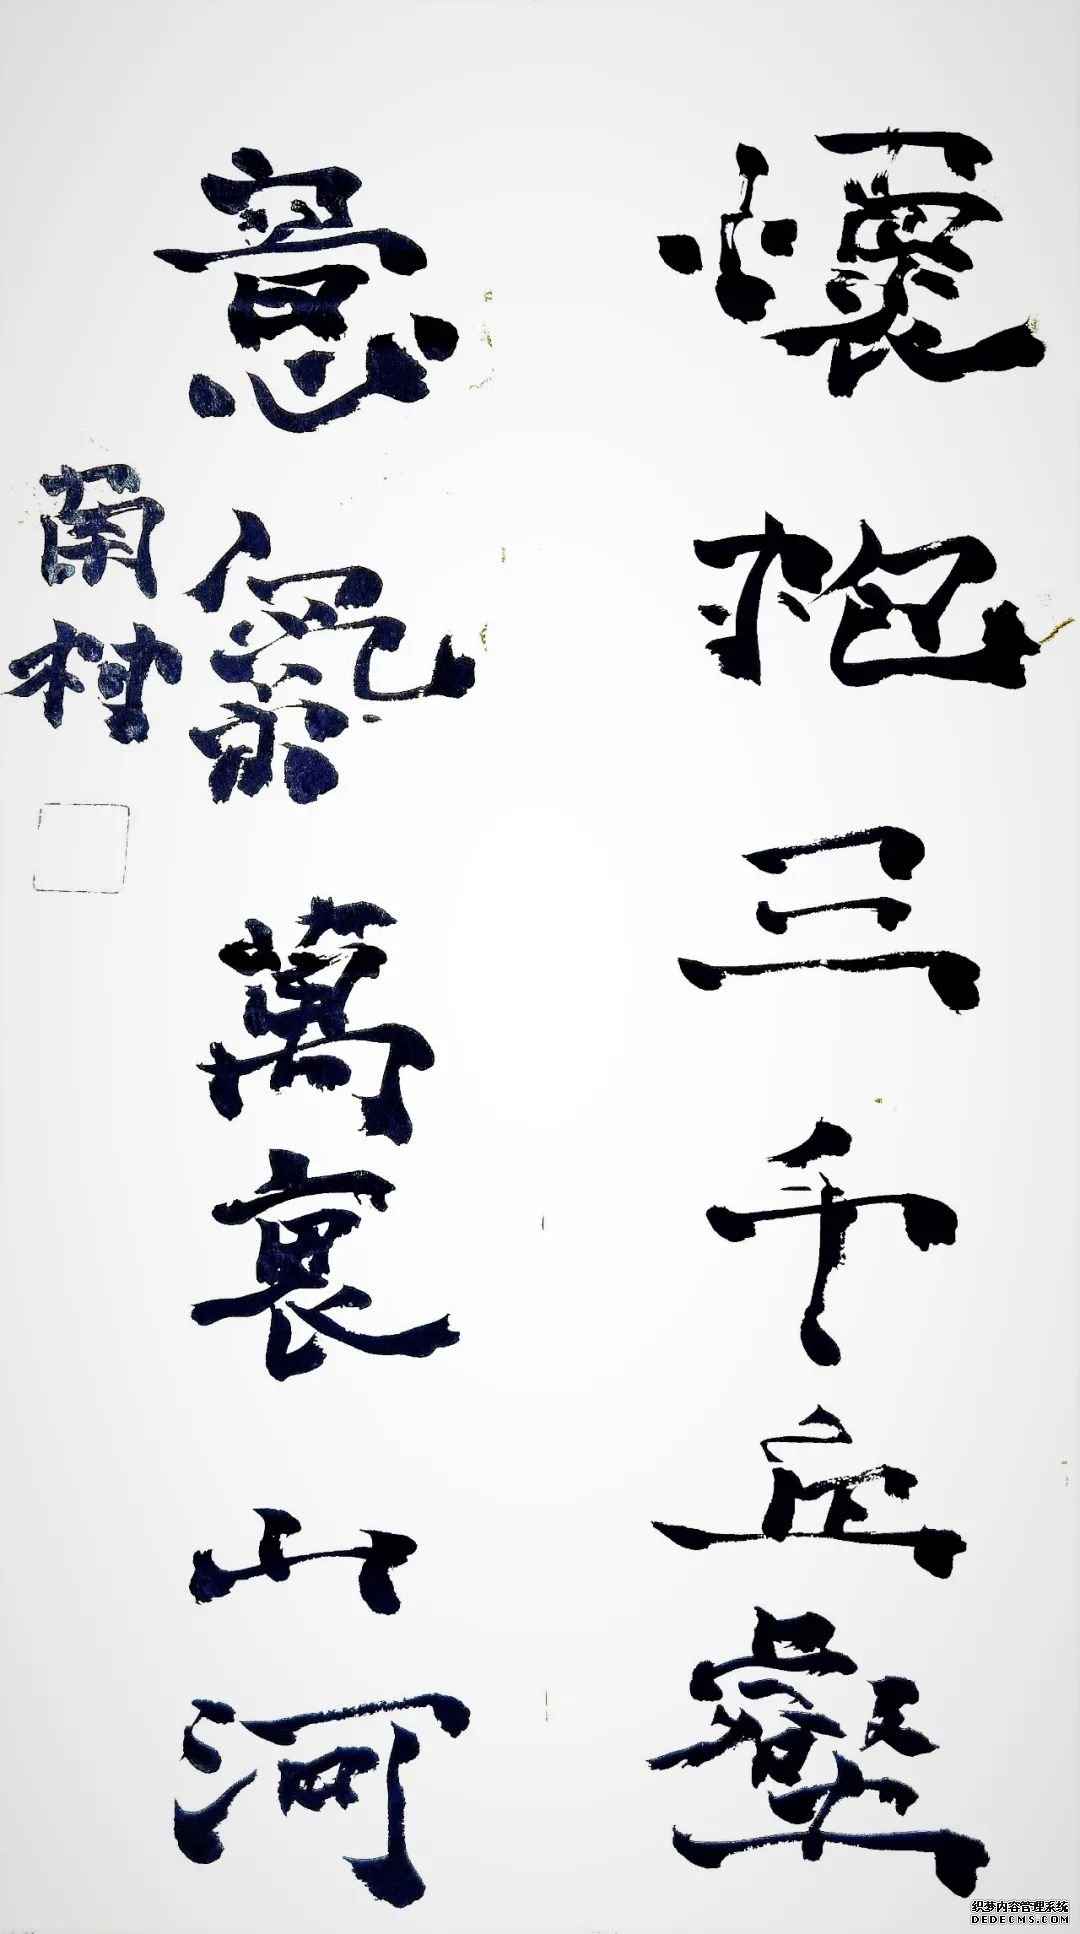 懷抱三千丘壑
意氣萬裏山河
南村
织梦内容管理系统
DEDECMS.COM